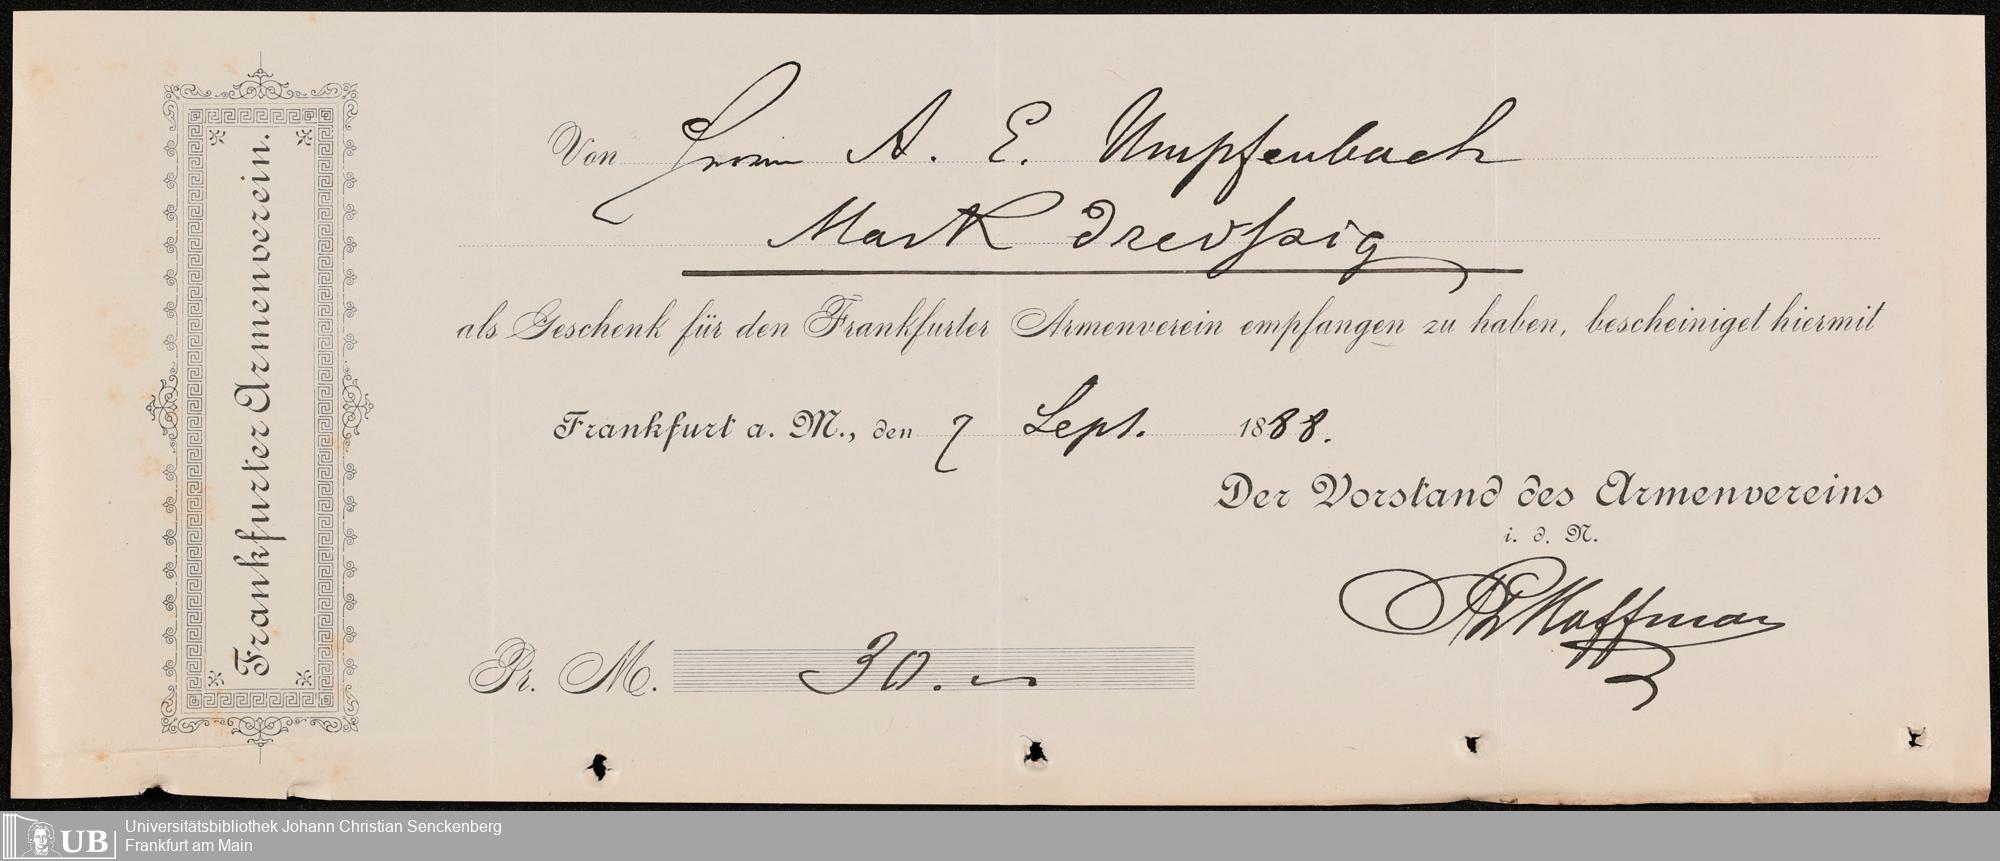 Frankfurter Armenverein.
Von Herrn A. E. Umpfenbach
Mark dreissig
als Geschenk für den Frankfurter Armenverein empfangen zu haben, bescheiniget hiermit
Frankfurt a. M., den 7 Sept. 1888.
Der Vorstand des Armenvereins
i. d. N.
Hoffman
Pr. M. 30.—
UB
Universitätsbibliothek Johann Christian Senckenberg
Frankfurt am Main